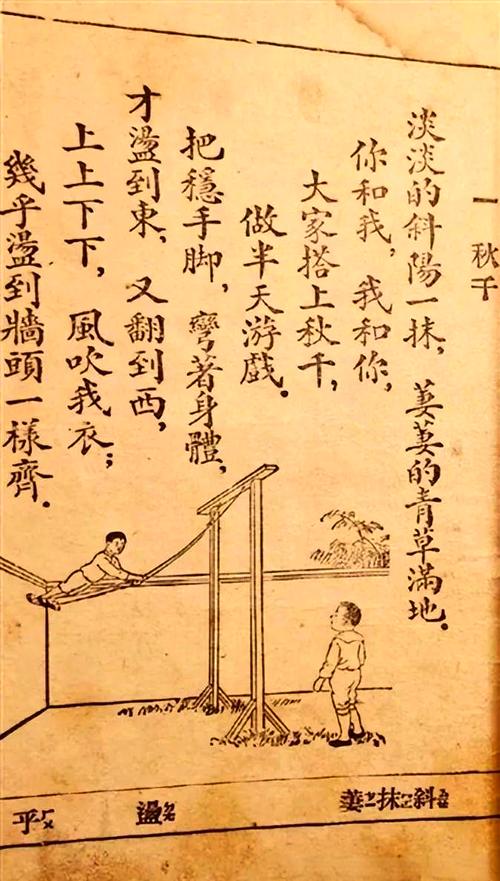 一 秋千
淡淡的斜陽一抹，萋萋的青草滿地．
你和我，我和你，
大家搭上秋千，
做半天游戲．
把穩手脚，彎著身體，
才盪到東，又翻到西，
上上下下，風吹我衣；
幾乎盪到牆頭一樣齊．
斜 抹 萋
盪
乎ㄏㄨ